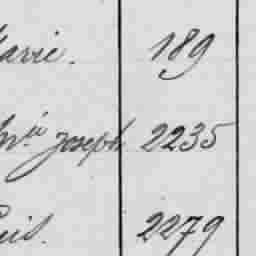 Marie. 189
Mie Joseph 2235
Luis. 2279